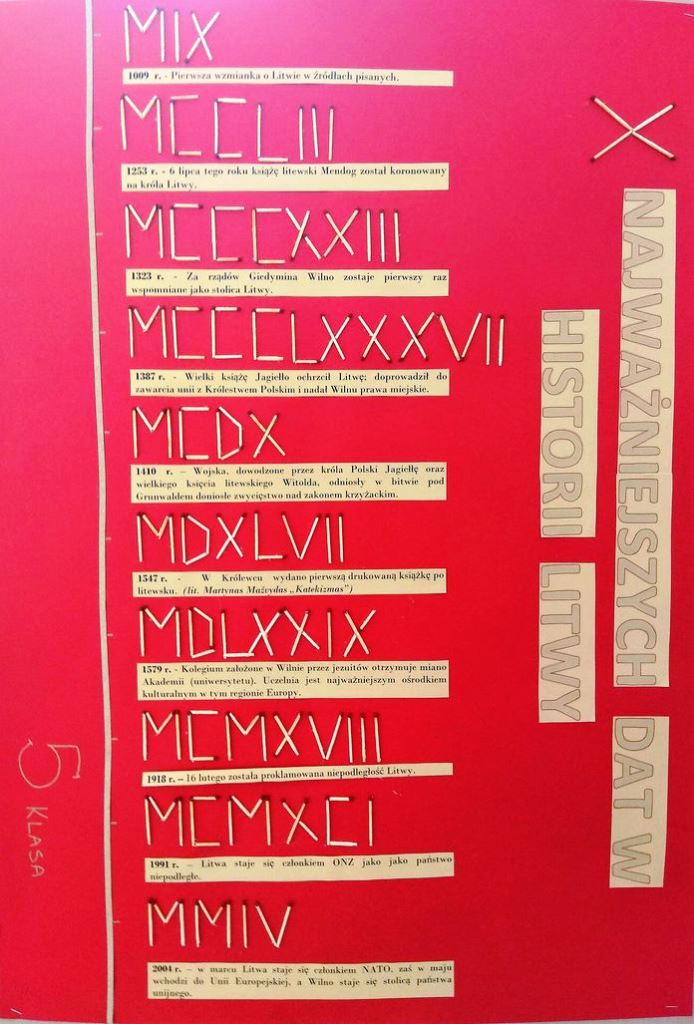 X
NAJWAŻNIEJSZYCH DAT W
HISTORII LITWY
MIX
1009 r. - Pierwsza wzmianka o Litwie w źródłach pisanych.
MCCLIII
1253 r. - 6 lipca tego roku książę litewski Mendog został koronowany
na króla Litwy.
MCCCXXIII
1323 r. - Za rządów Giedymina Wilno zostaje pierwszy raz
wspomniane jako stolica Litwy.
MCCCLXXXVII
1387 r. - Wielki książę Jagiełło ochrzcił Litwę; doprowadził do
zawarcia unii z Królestwem Polskim i nadał Wilnu prawa miejskie.
MCDX
1410 r. – Wojska, dowodzone przez króla Polski Jagiełłę oraz
wielkiego księcia litewskiego Witolda, odniosły w bitwie pod
Grunwaldem doniosłe zwycięstwo nad zakonem krzyżackim.
MDXLVII
1547 r. - W Królewcu wydano pierwszą drukowaną książkę po
litewsku. (lit. Martynas Mažvydas „Katekizmas”)
MDLXXIX
1579 r. - Kolegium założone w Wilnie przez jezuitów otrzymuje miano
Akademii (uniwersytetu). Uczelnia jest najważniejszym ośrodkiem
kulturalnym w tym regionie Europy.
MCMXVIII
1918 r. – 16 lutego została proklamowana niepodległość Litwy.
MCMXCI
1991 r. – Litwa staje się członkiem ONZ jako jako państwo
niepodległe.
MMIV
2004 r. – w marcu Litwa staje się członkiem NATO, zaś w maju
wchodzi do Unii Europejskiej, a Wilno staje się stolicą państwa
unijnego.
5 KLASA